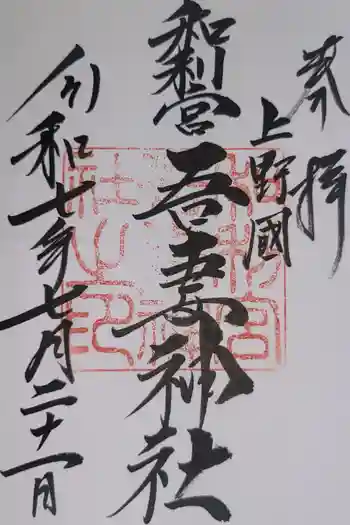 奉拝
上野國
和利宮
吾妻神社
令和七年七月二十一日